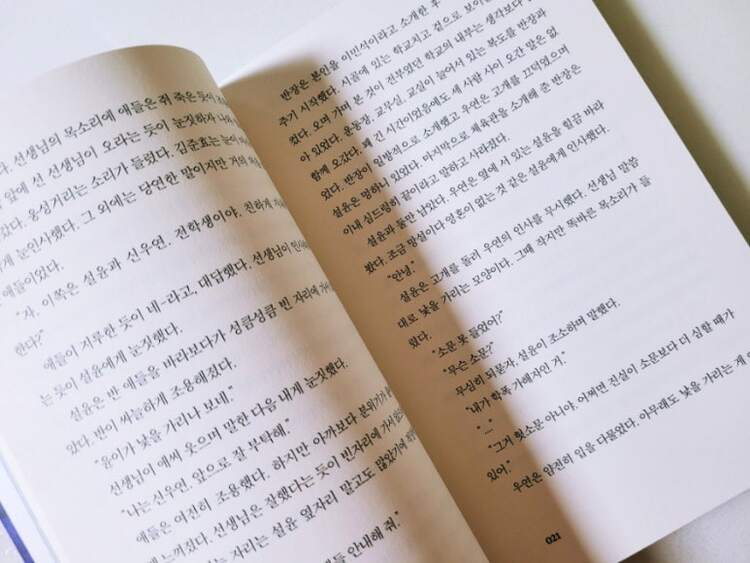 선생님의 목소리에 애들은 쥐 죽은 듯이
앞에 선 선생님이 오라는 듯이 눈짓하자
웅성거리는 소리가 들렸다. 김순효는 눈이
게 눈인사했다. 그 외에는 당연한 말이지만 거의
애들이었다.
“자, 이쪽은 설윤과 신우연. 전학생이야. 친하게
한다?”
애들이 지루한 듯이 네-라고, 대답했다. 선생님이
는 듯이 설윤에게 눈짓했다.
설윤은 반 애들을 바라보다가 성큼성큼 빈 자리에
았다. 반이 싸늘하게 조용해졌다.
“윤이가 낯을 가리나 보네.”
선생님이 애써 웃으며 말한 다음 내게 눈짓했다.
“나는 신우연. 앞으로 잘 부탁해.”
애들은 여전히 조용했다. 하지만 아까보다 분위기가
느껴졌다. 선생님은 잘했다는 듯이 빈자리에
는 자리는 설윤 옆자리 말고도 많았기에
안내해 줘.”
반장은 본인을 이민석이라고 소개한 후
주기 시작했다. 시골에 있는 학교치고 겉으로 보이는
오며 가며 본 것이 전부였던 학교의 내부는 생각보다
아 있었다. 운동장, 교무실, 교실이 늘어서 있는 복도를 반장과
함께 오갔다. 꽤 긴 시간이었음에도 세 사람 사이 오간 말은 없
었다. 반장이 일방적으로 소개했고 우연은 고개를 끄덕였으며
설윤은 멍하니 있었다. 마지막으로 체육관을 소개해 준 반장은
이내 심드렁히 끝이라고 말하고 사라졌다.
설윤과 둘만 남았다. 우연은 옆에 서 있는 설윤을 힐끔 바라
봤다. 조금 망설이다 영혼이 없는 것 같은 설윤에게 인사했다.
“안녕.”
설윤은 고개를 돌려 우연의 인사를 무시했다. 선생님 말씀
대로 낯을 가리는 모양이다. 그때 작지만 똑바른 목소리가 들
렸다.
“소문 못 들었어?”
“무슨 소문?”
무심히 되묻자, 설윤이 조소하며 말했다.
“내가 학폭 가해자인 거.”
“…”
“그거 헛소문 아니야. 어쩌면 진실이 소문보다 더 심할 때가
있어.”
우연은 얌전히 입을 다물었다. 아무래도 낯을 가리는 게
021